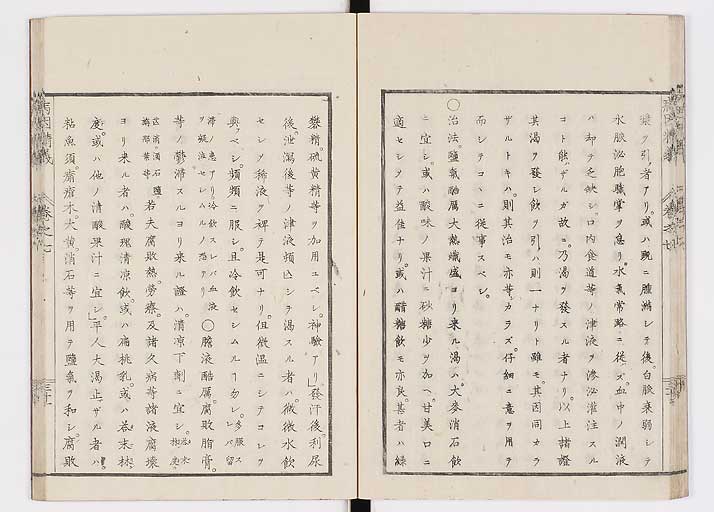 藥ヲ引ク者アリ。或ハ既ニ腫淋シテ後。白脈衰弱シテ
水脈泌胞職掌ヲ怠リ。水氣常路ニ從ズ。血中ノ潤液
ハ却テ乏缺シ。口内食道等ノ津液ヲ滲泌灌注スル
コト能ザルガ故ニ。乃渇ヲ發スル者ナリ。以上諸證
其渇ヲ發シ飲ヲ引ハ則一ナリト雖モ。其因同カラ
ザルトキハ。則其治モ亦等カラズ。仔細ニ意ヲ用ヲ
而シテコヽニ從事スベシ。
〇治法鹽氣酷厲大熱熾盛ヨリ来ル渇ハ。大麥消石飲
ニ宜シ。或ハ酸味ノ果汁ニ砂糖少ヅヽ加ヘ。甘美口ニ
適セシヲテ益佳ナリ。或ハ醋糖飲モ亦良。甚者ハ緑
礬精。硫黄精等ヲ加用ユベシ。神驗アリ」發汗後。利尿
後。泄瀉後等ノ津液頓凶シテ渇スル者ハ。微微水飲
セシヲ稀液ヲ裨テ是可ナリ。但微温ニシテコレヲ
與ベシ。頻頻ニ服シ。且冷飲セシムルヿ勿レ。多服スレバ留
滞ノ患アリ冷飲スレバ血液ヲ凝泣セシムルノ恐アリ 〇膽液酷厲。腐敗脂膏。
等ノ鬱滞スルヨリ来ル證ハ。清凉下劑ニ宜シ。
若夫腐敗熱。勞瘵。及諸久病等諸液腐壊
ヨリ来ル者ハ。酸瑰清凉飲。或ハ扁桃乳。或ハ芯末林
度。或ハ他ノ清酸果汁ニ宜シ」平人大渇止ザル者ハ。
粘魚須癤瘡木。大黄消石等ヲ用テ鹽氣ヲ和シ。腐敗